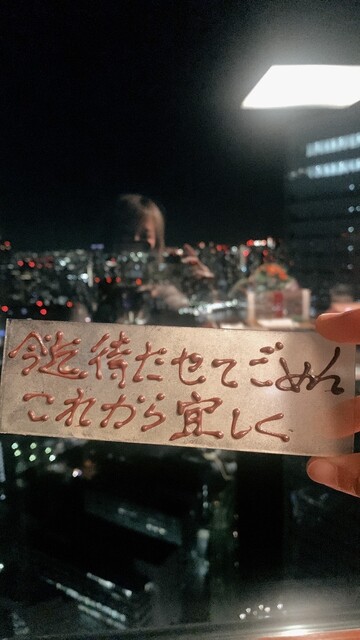 今迄待たせてごめん
これから宜しく